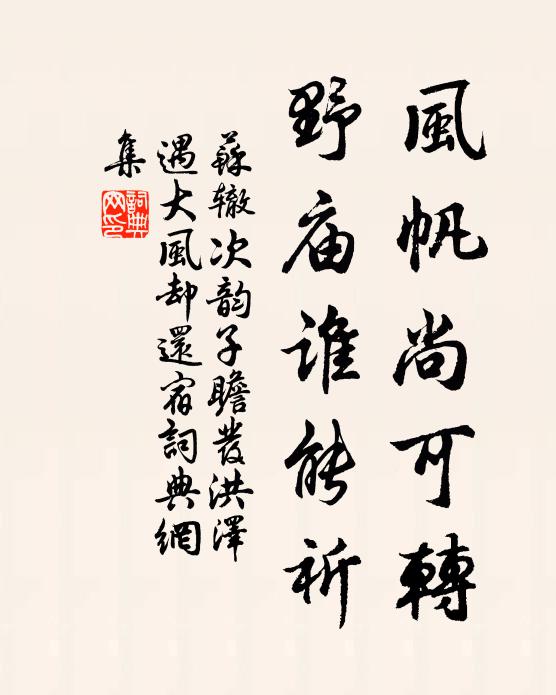 風帆尚可轉
野庙誰能祈
蘇辙次韵子瞻發洪澤
遇大風却還宿詞典網
集
詞典網印